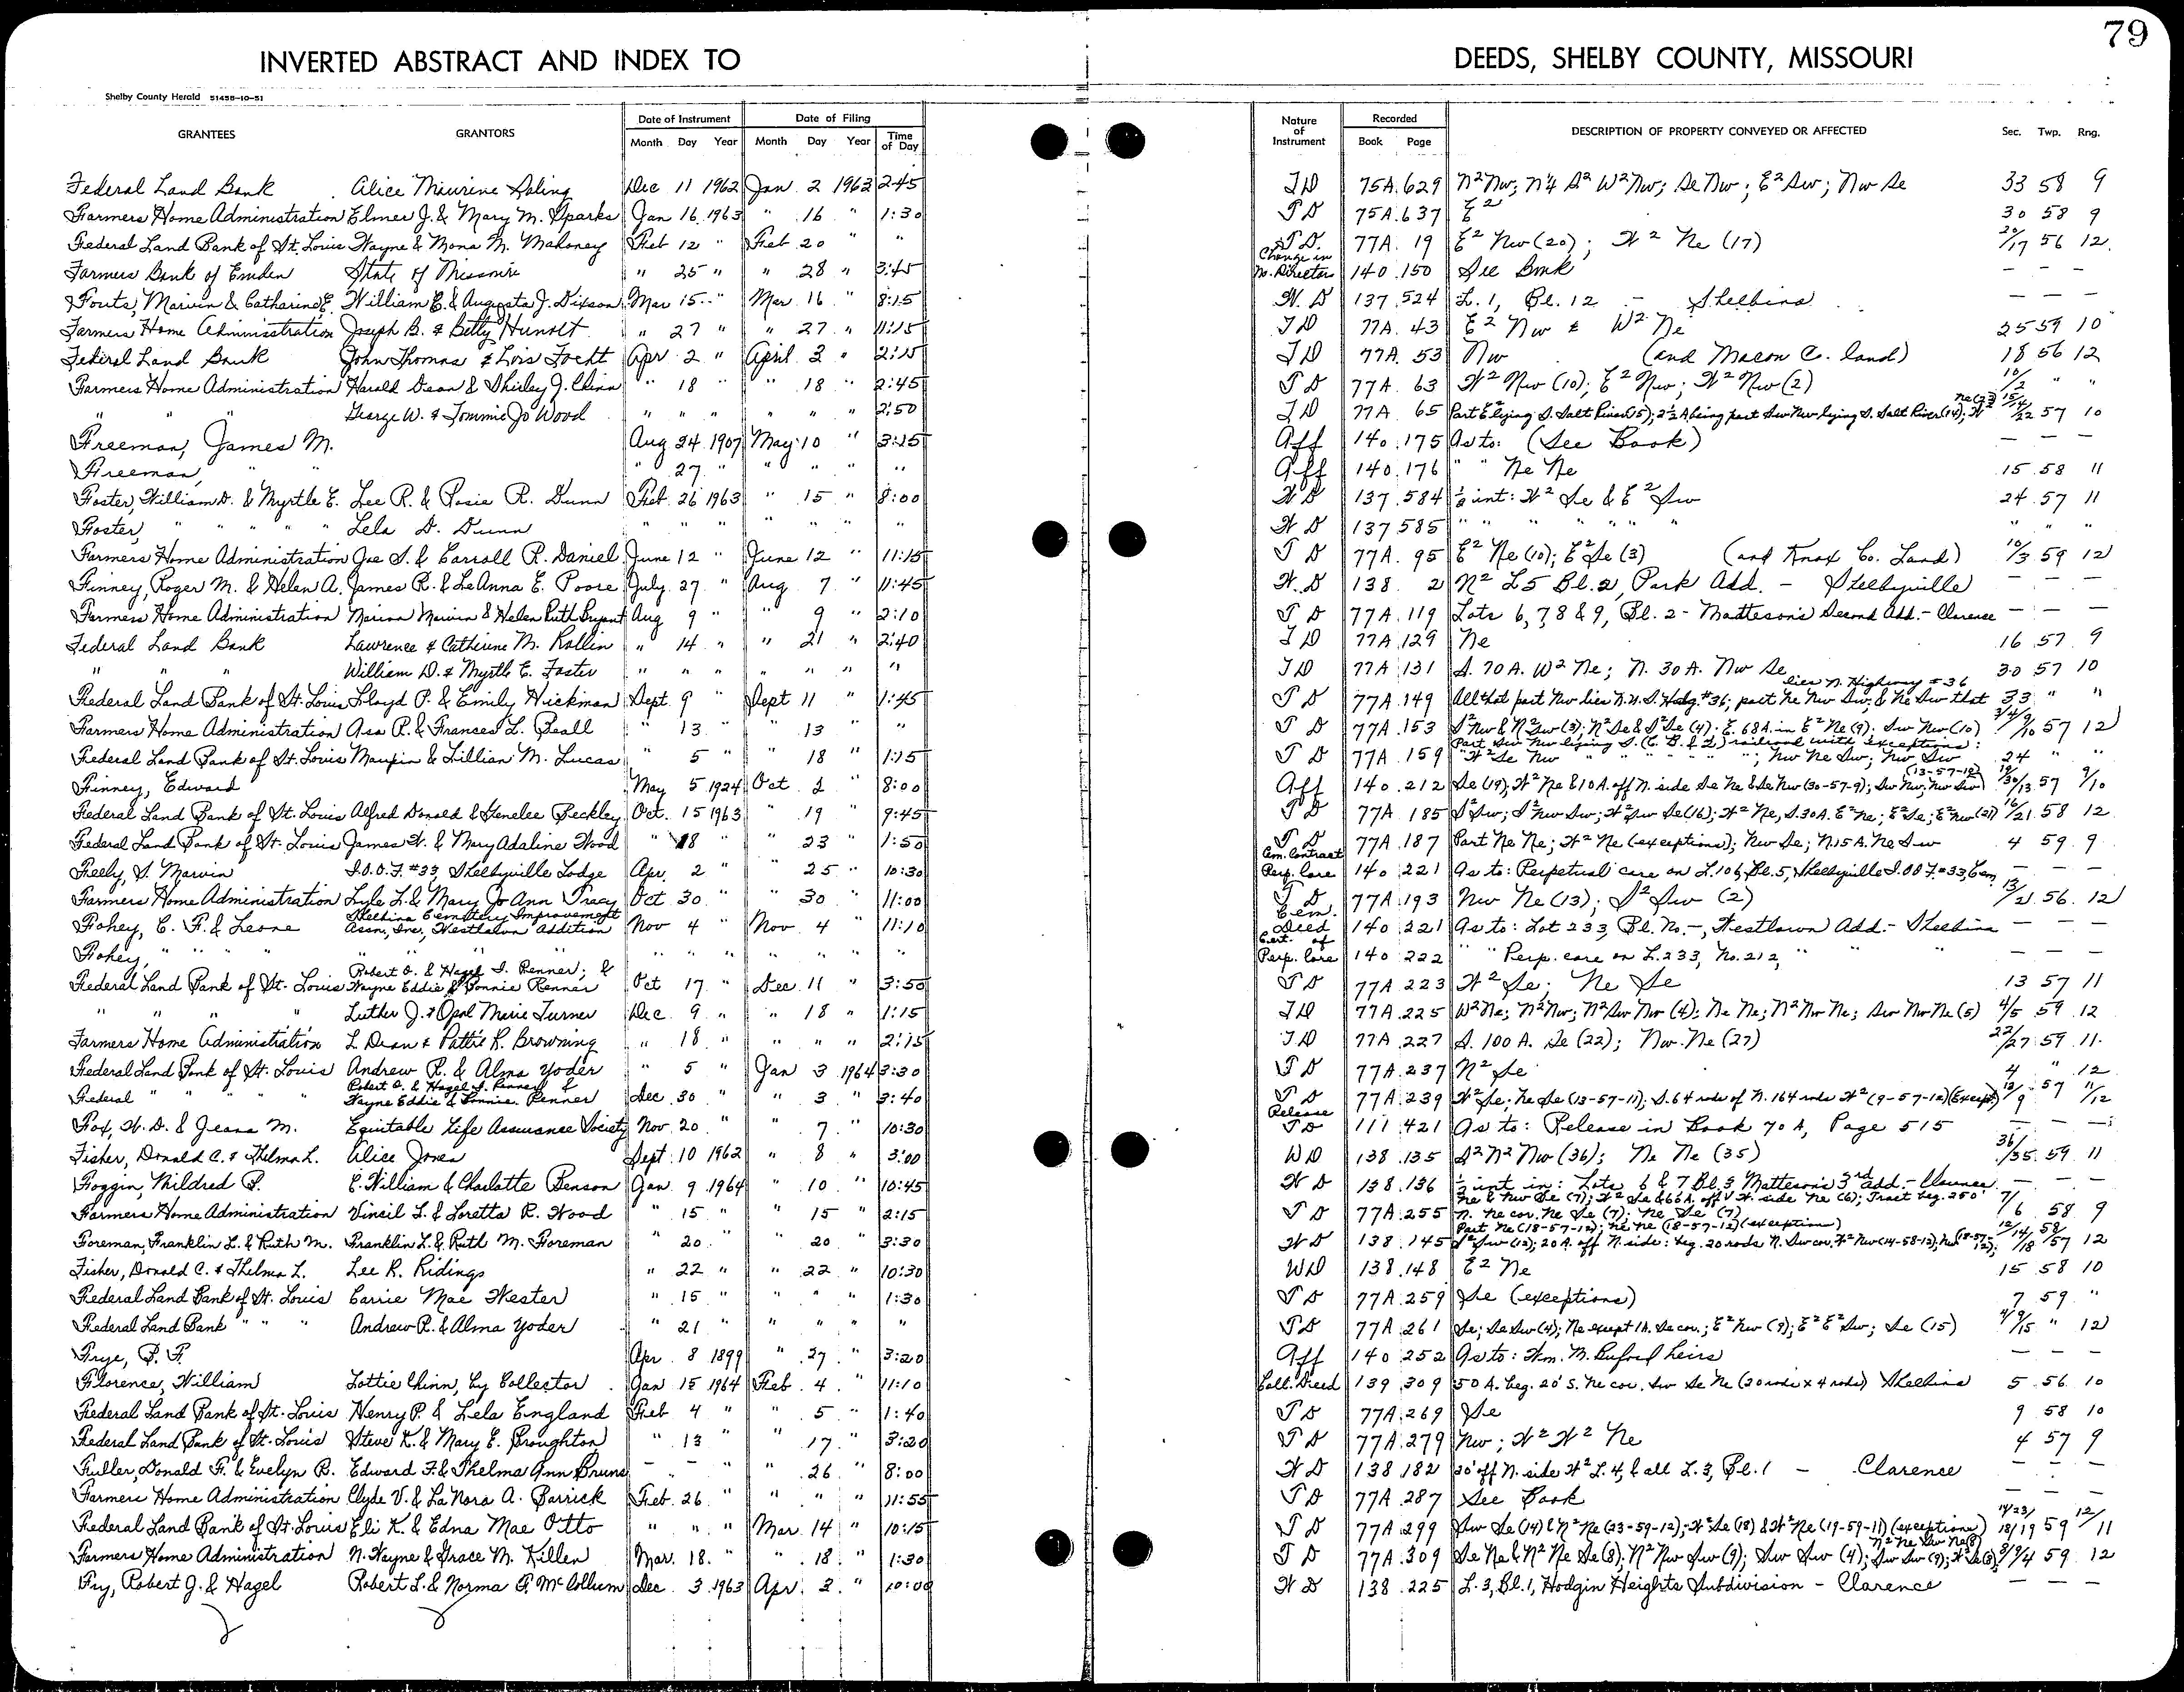 79
INVERTED ABSTRACT AND INDEX TO DEEDS, SHELBY COUNTY, MISSOURI
Shelby County Herald 51458-10-51
GRANTEES GRANTORS Date of Instrument Month Day Year Date of Filing Month Day Year Time of Day Nature of Instrument Recorded Book Page DESCRIPTION OF PROPERTY CONVEYED OR AFFECTED Sec. Twp. Rng.
Federal Land Bank Alice Maurine Dec 11 1962 Jan. 2 1963 2:45 TD 75A 629 N²Nw; N¼ S² W²Nw; Se Nw; E²Sw; Nw Se 33 58 9
Farmers Home Administration Elmer J. & Mary M. Sparks Jan 16 1963 " 16 " 1:30 TD 75A 637 E² 30 58 9
Federal Land Bank of St. Louis Wayne & Mona M. Mahoney Feb 12 " Feb 20 " " TD. 77A. 19 E² Nw (20); W² Ne (17) 20/17 56 12
Farmers Bank of Emden State of Missouri " 25 " " 28 " 3:45 Change in Director 140 150 See Book — — —
Fouts, Marvin & Catharine E. William E. & Augusta J. Dixson Mar 15 " Mar 16 " 8:15 W.D 137 524 L. 1, Bl. 12 - Shelbina — — —
Farmers Home Administration Joseph B. & Betty Hunolt " 27 " " 27 " 11:15 TD 77A. 43 E² Nw & W² Ne 25 59 10
Federal Land Bank John Thomas & Lois Fohtt Apr 2 " April 3 " 2:15 TD 77A. 53 Nw (and Macon C. land) 18 56 12
Farmers Home Administration Harold Dean & Shirley J. Chinn " 18 " " 18 " 2:45 TD 77A. 63 W² Nw (10); E² Nw; W² Nw (2) 10/2 " "
" " " George W. & Tommie Jo Wood " " " " " " 2:50 TD 77A 65 Part E² lying S. Salt River (15); 2½ A being part Sw Nw lying S. Salt River (14); W² Ne (22) 15/14/22 57 10
Freeman, James M. Aug 24 1907 May 10 " 3:15 Aff 140 175 As to: (See Book) — — —
Freeman, " " " 27 " " " " " Aff 140 176 " " Ne Ne 15 58 11
Foster, William D. & Myrtle E. Lee R. & Rosie R. Dunn Feb. 26 1963 " 15 " 8:00 WD 137 584 ½ int: W² Se & E² Sw 24 57 11
Foster, " " " " Lela D. Dunn " " " " " " " WD 137 585 " " " " " " " " "
Farmers Home Administration Joe S. & Carroll R. Daniel June 12 " June 12 " 11:15 TD 77A. 95 E² Ne (10); E² Se (3) (and Knox Co. Land) 10/3 59 12
Finney, Roger M. & Helen A. James R. & LeAnna E. Poore July 27 " Aug 7 " 11:45 W.D 138 2 N² L5 Bl. 2, Park Add. - Shelbyville — — —
Farmers Home Administration Marion Marvin & Helen Ruth Bryant Aug 9 " " 9 " 2:10 TD 77A 119 Lots 6, 7, 8 & 9, Bl. 2 - Matteson's Second Add. - Clarence — — —
Federal Land Bank Lawrence & Catherine M. Rollin " 14 " " 21 " 2:40 TD 77A 129 Ne 16 57 9
" " " William D. & Myrtle E. Foster " " " " " " " TD 77A 131 S. 70 A. W² Ne; N. 30 A. Nw Se 30 57 10
Federal Land Bank of St. Louis Lloyd P. & Emily Hickman Sept 9 " Sept 11 " 1:45 TD 77A 149 All that part Nw lies N. U.S. Hdwg. #36; part Ne Nw Sw; & Ne Sw that lies N. Highway #36 33 " "
Farmers Home Administration Asa R. & Frances L. Beall " 13 " " 13 " " TD 77A 153 S² Nw & N² Sw (3); N² Se & S² Se (4); E. 68 A. in E² Ne (9); Sw Nw (10) 3/4/9/10 57 12
Federal Land Bank of St. Louis Maupin & Lillian M. Lucas " 5 " " 18 " 1:15 TD 77A 159 Part Sw Nw lying S. (C. B. & Q.) railroad with exceptions; W² Se Nw " " " " "; Nw Ne Sw; Nw Sw 24 " "
Finney, Edward May 5 1924 Oct. 2 " 8:00 Aff 140 212 Se (19); W² Ne & 10 A. off N. side Se Ne & Se Nw (30-57-9); Sw Nw; Nw Sw (13-57-10) 19/30/13 57 9/10
Federal Land Bank of St. Louis Alfred Donald & Genelee Peckley Oct. 15 1963 " 19 " 9:45 TD 77A 185 S² Sw; S² Nw Sw; W² Sw Se (16); W² Ne, S. 30 A. E² Ne; E² Se; E² Nw (21) 16/21 58 12
Federal Land Bank of St. Louis James W. & Mary Adaline Wood " 18 " " 23 " 1:50 TD 77A 187 Part Ne Ne; W² Ne (exceptions); Nw Se; N. 15 A. Ne Sw 4 59 9
Feely, S. Marvin I.O.O.F. #33, Shelbyville Lodge Apr. 2 " " 25 " 10:30 Cem. Contract Perp. Care 140 221 As to: Perpetual care on L. 106, Bl. 5, Shelbyville I.O.O.F. #33, Cem. — —
Farmers Home Administration Lyle L. & Mary Jo Ann Tracy Oct 30 " " 30 " 11:00 TD 77A 193 Nw Ne (13); S² Sw (2) 13/2 56 12
Fohey, C. F. & Leone Shelbina Cemetery Improvement Assn., Inc., Westlawn Addition Nov 4 " Nov. 4 " 11:10 Cem. Deed 140 221 As to: Lot 233, Bl. No. -, Westlawn Add. - Shelbina — —
Fohey, " " " " " " " " " " " Cert. of Perp. Care 140 222 " " Perp. care on L. 233, No. 212, " " " — —
Federal Land Bank of St. Louis Robert O. & Hazel I. Renner; & Wayne Eddie & Bonnie Renner Oct 17 " Dec. 11 " 3:50 TD 77A 223 W² Se; Ne Se 13 57 11
" " " " Luther J. & Opal Marie Turner Dec. 9 " " 18 " 1:15 TD 77A 225 W² Ne; N² Nw; N² Sw Nw (4); Ne Ne; N² Nw Ne; Sw Nw Ne (5) 4/5 59 12
Farmers Home Administration L. Dean & Pattie R. Browning " 18 " " " " 2:15 TD 77A 227 S. 100 A. Se (22); Nw Ne (27) 22/27 59 11
Federal Land Bank of St. Louis Andrew R. & Alma Yoder " 5 " Jan 3 1964 3:30 TD 77A 237 N² Se 4 " 12
Federal " " " " Robert O. & Hazel I. Renner & Wayne Eddie & Bonnie Renner Dec. 30 " " 3 " 3:40 TD 77A 239 W² Se; Ne Se (13-57-11); S. 64 rods of N. 164 rods W² (9-57-12) (Except) 13/9 57 11/12
Fox, W. D. & Jeana M. Equitable Life Assurance Society Nov. 20 " " 7 " 10:30 Release TD 111 421 As to: Release in Book 70 A, Page 515 — — —
Fisher, Donald C. & Thelma L. Alice Jones Sept. 10 1962 " 8 " 3:00 WD 138 135 S² N² Nw (36); Ne Ne (35) 36/35 59 11
Foggin, Mildred P. E. William & Charlotte Benson Jan. 9 1964 " 10 " 10:45 WD 138 136 ½ int in: Lots 6 & 7 Bl. 3 Matteson's 3rd Add. - Clarence — — —
Farmers Home Administration Vincil L. & Loretta R. Wood " 15 " " 15 " 2:15 TD 77A 255 Ne & Nw Se (7); W² Se & 66 A. off W. side Ne (6); Tract beg. 250' N. Ne cor. Ne Se (7); Ne Se (7) 7/6 58 9
Foreman, Franklin L. & Ruth M. Franklin L. & Ruth M. Foreman " 20 " " 20 " 3:30 WD 138 145 Part Ne (18-57-12); Ne Ne (18-57-12) (exception) S² Sw (12); 20 A. off N. side: beg. 20 rods N. Sw cor. W² Nw (14-58-12); 12/14/18 58/57 12
Fisher, Donald C. & Thelma L. Lee R. Ridings " 22 " " 22 " 10:30 WD 138 148 E² Ne 15 58 10
Federal Land Bank of St. Louis Carrie Mae Wester " 15 " " " " 1:30 TD 77A 259 Se (exceptions) 7 59 "
Federal Land Bank " " " Andrew R. & Alma Yoder " 21 " " " " " TD 77A 261 Se; Se Sw (4); Ne except 1 A. Se cor.; E² Nw (9); E² E² Sw; Se (15) 4/9/15 " 12
Frye, P. F. Apr. 8 1899 " 27 " 3:20 Aff 140 252 As to: Wm. M. Buford heirs — — —
Florence, William Lottie Chinn, by Collector Jan 15 1964 Feb. 4 " 11:10 Coll. Deed 139 309 50 A. beg. 20' S. Ne cor. Sw Se Ne (20 rods x 4 rods) Shelbina 5 56 10
Federal Land Bank of St. Louis Henry P. & Lela England Feb 4 " " 5 " 1:40 TD 77A 269 Se 9 58 10
Federal Land Bank of St. Louis Steve K. & Mary E. Broughton " 13 " " 17 " 3:20 TD 77A 279 Nw; W² W² Ne 4 57 9
Fuller, Donald F. & Evelyn B. Edward F. & Thelma Ann Bruns — — " " 26 " 8:00 WD 138 182 20' off N. side W² L. 4, & all L. 3, Bl. 1 - Clarence — — —
Farmers Home Administration Clyde V. & LaNora A. Barrick Feb. 26 " " " " 11:55 TD 77A 287 See Book — — —
Federal Land Bank of St. Louis Eli K. & Edna Mae Otto " " " Mar. 14 " 10:15 TD 77A 299 Sw Se (14) & N² Ne (23-59-12); W² Se (18) & W² Ne (19-59-11) (exceptions) 14/23/18/19 59 12/11
Farmers Home Administration N. Wayne & Grace M. Killen Mar. 18 " " 18 " 1:30 TD 77A 309 Se Ne & N² Ne Se (8); N² Nw Sw (9); Sw Sw (4); Sw Sw (9); N² Ne Sw Ne (8) 8/9/4 59 12
Fry, Robert J. & Hazel Robert L. & Norma F. McCollum Dec. 3 1963 Apr. 3 " 10:00 WD 138 225 L. 3, Bl. 1, Hodgin Heights Subdivision - Clarence — — —